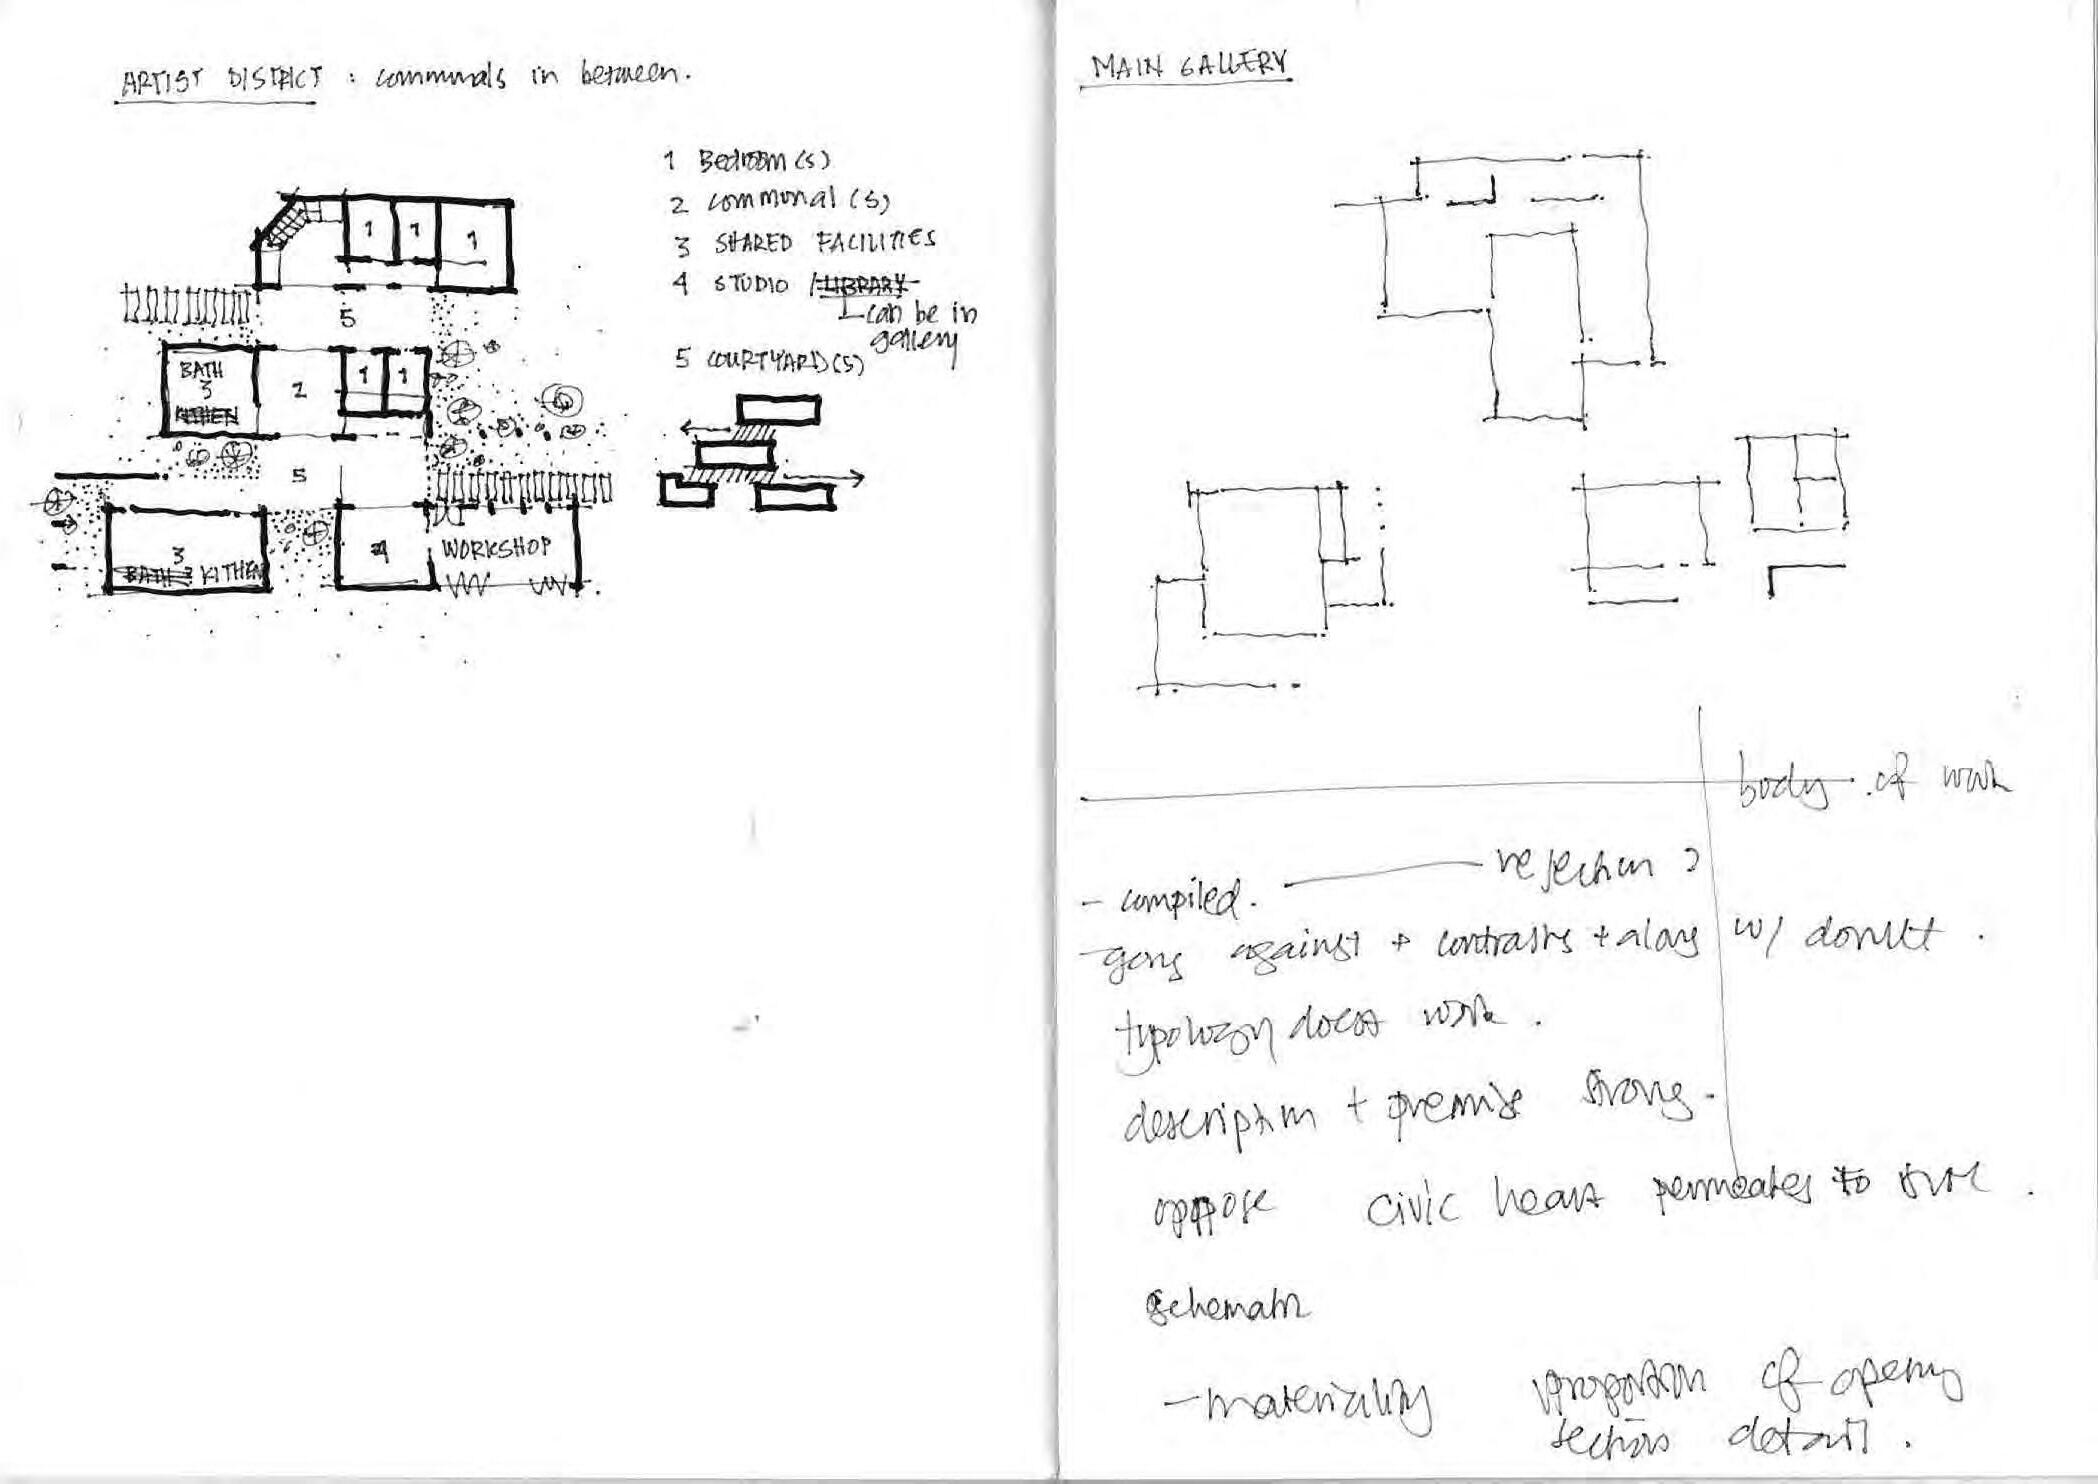 ARTIST DISTRICT : communals in between.
1 Bedroom(s)
2 communal(s)
3 SHARED FACILITIES
4 STUDIO / LIBRARY
can be in
gallery
5 COURTYARD(S)
1 1 1
5
BATH
3
KITHEN
2
1 1
5
3
BATH KITHEN
4
WORKSHOP
MAIN GALLERY
body of work
- compiled. rejection ?
- going against + contrasts + along w/ donut.
typology doesn't work.
description + premise strong.
oppose civic heart permeates to
schematic
- materiality proportion of opening
sections detail.